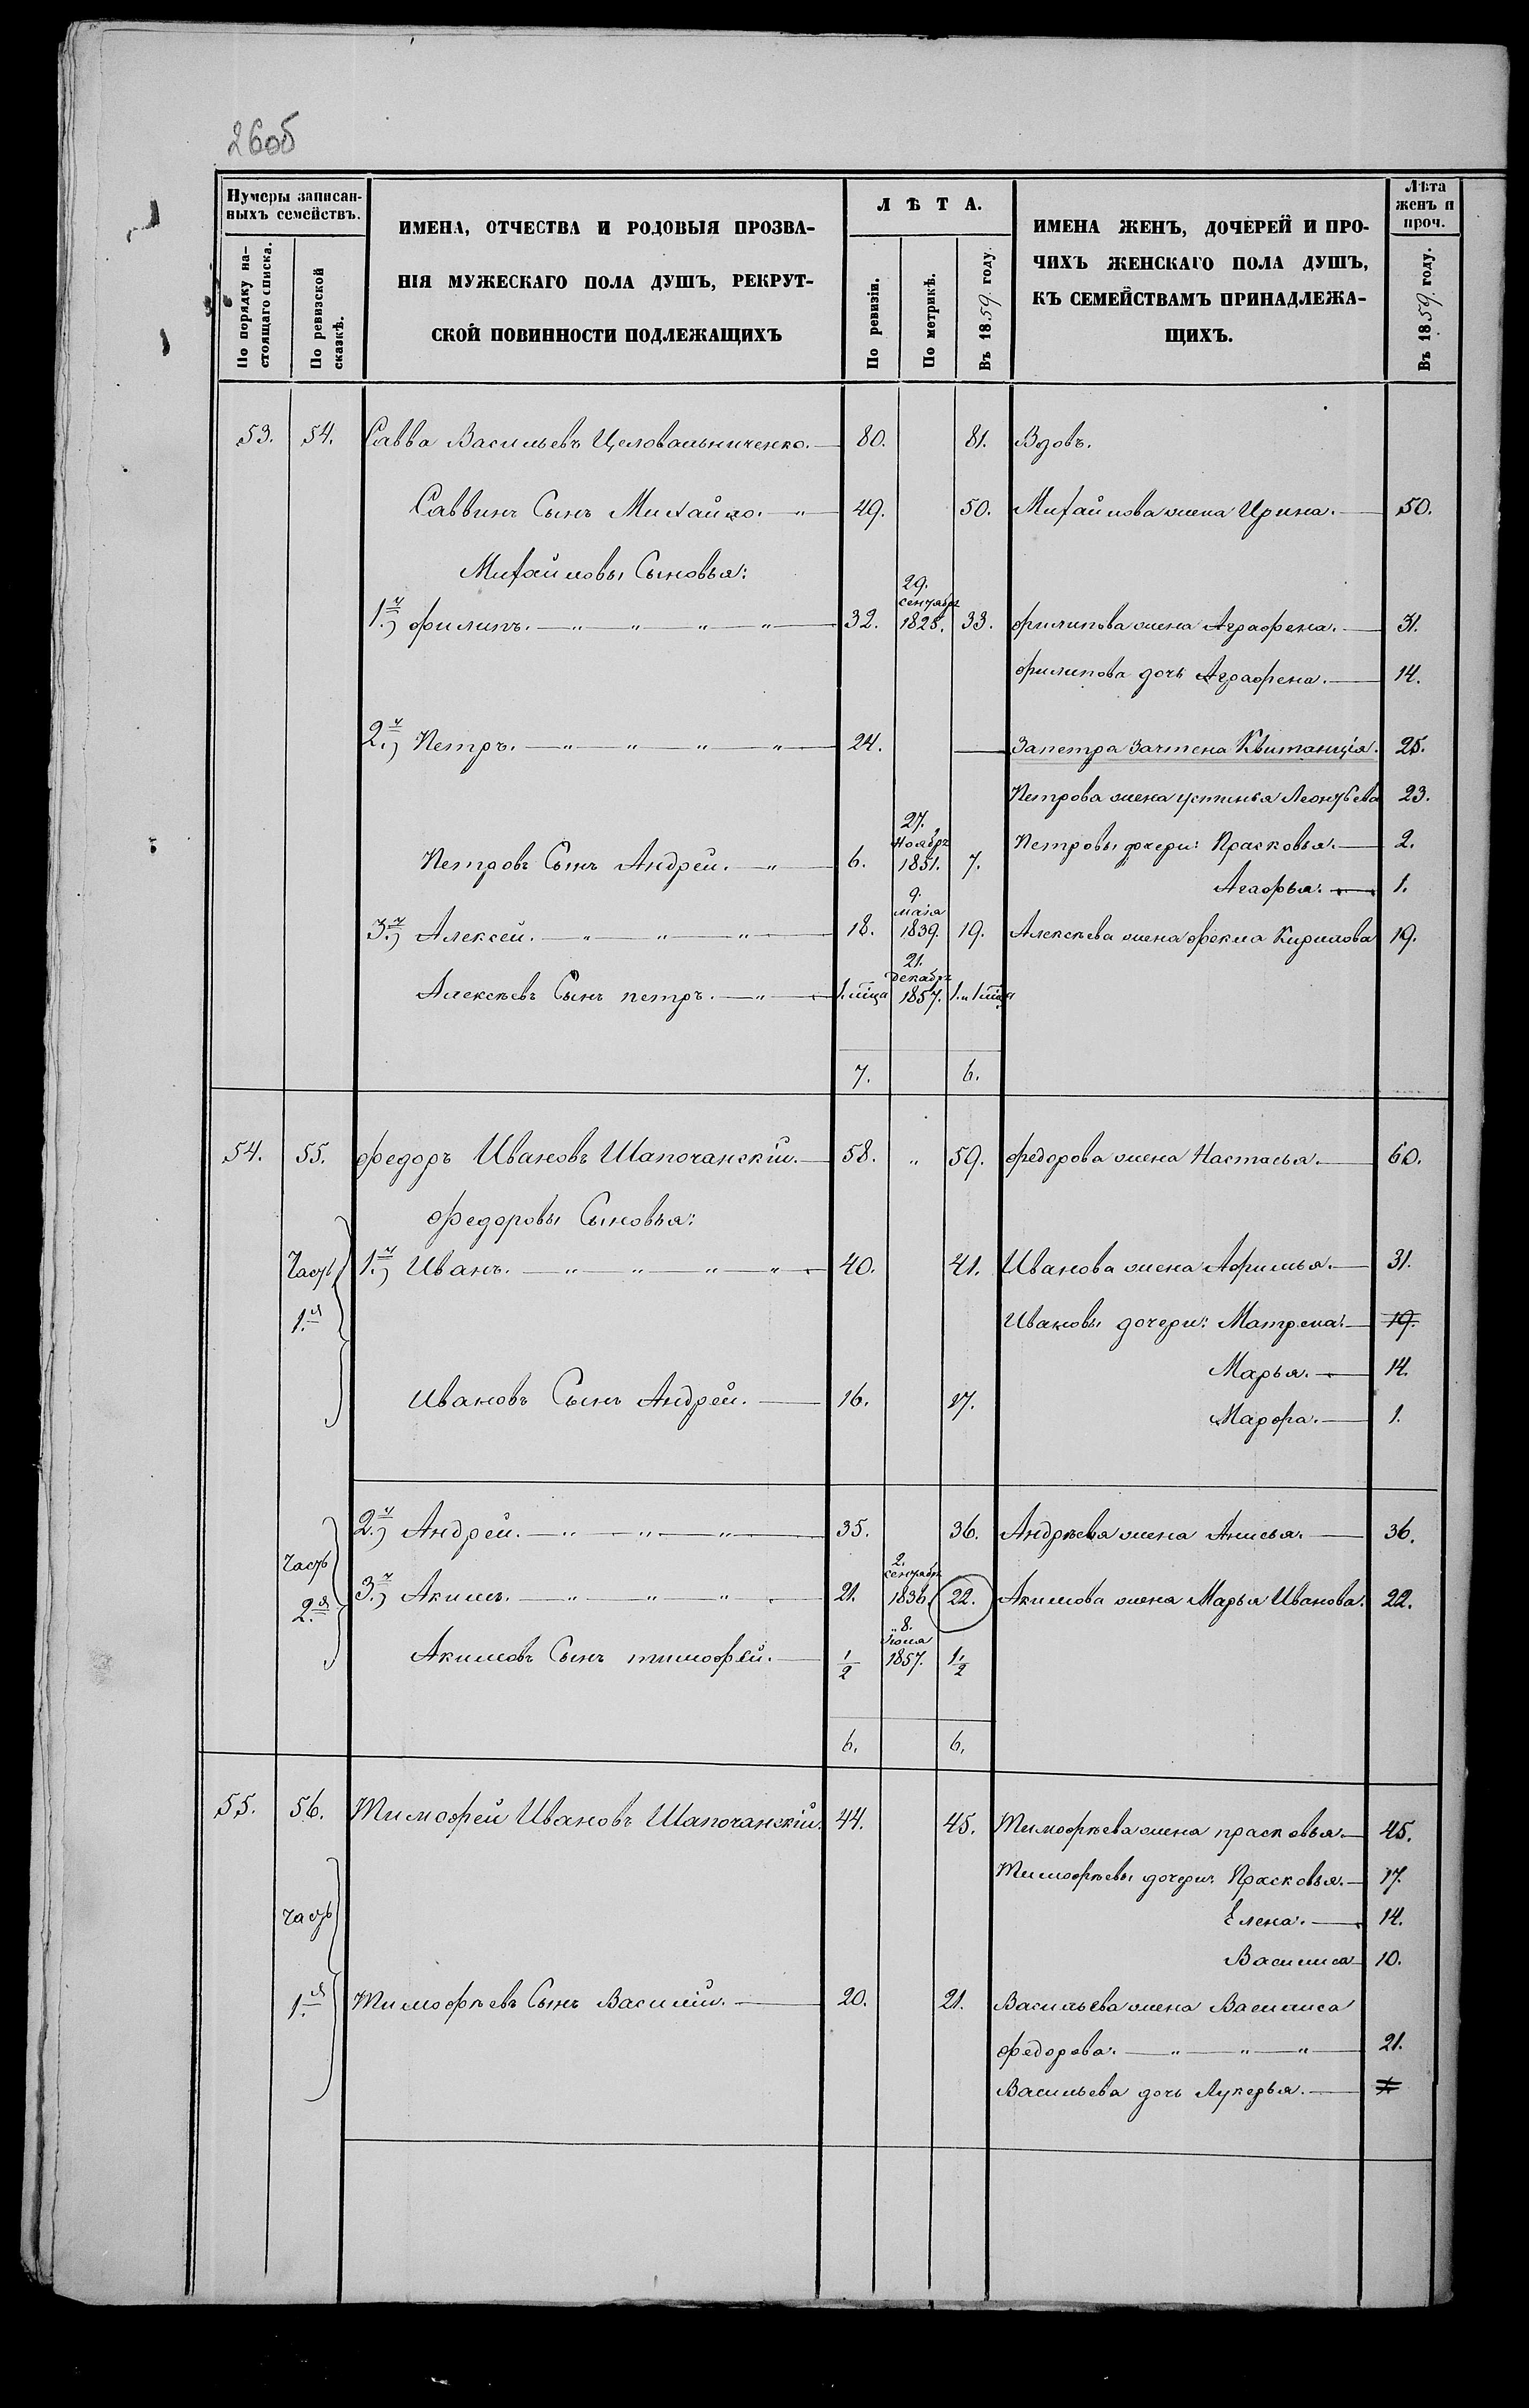 260об
Нумеры записан-
ныхъ семействъ.
По порядку на-
стоящаго списка.
По ревизской
сказкѣ.
ИМЕНА, ОТЧЕСТВА И РОДОВЫЯ ПРОЗВА-
НІЯ МУЖЕСКАГО ПОЛА ДУШЪ, РЕКРУТ-
СКОЙ ПОВИННОСТИ ПОДЛЕЖАЩИХЪ
ЛѢТА.
По ревизіи.
По метрикѣ.
Въ 1859 году.
ИМЕНА ЖЕНЪ, ДОЧЕРЕЙ И ПРО-
ЧИХЪ ЖЕНСКАГО ПОЛА ДУШЪ,
КЪ СЕМЕЙСТВАМЪ ПРИНАДЛЕЖА-
ЩИХЪ.
Лѣта
женъ и
проч.
Въ 1859 году.
53. 54. Савва Васильевъ Целовальниченко. — 80. 81. Вдовъ.
Саввинъ Сынъ Михайло. — " — 49. 50. Михайлова жена Ирина. — 50.
Михайловы Сыновья:
29.
сентябр
1.й) филипъ. — " — " — " — " — 32. 1825. 33. филипова жена Аграфена. — 31.
филипова дочь Аграфена. — 14.
2.й) Петръ. — " — " — " — " — 24. — За петра зачтена Квитанція. 25.
Петрова жена устинья Леонтьева 23.
27.
Ноябр
Петровъ Сынъ Андрей. — " — 6. 1851. 7. Петровы дочери: Прасковья. — 2.
Агафья. — 1.
9.
маія
3.й) Алексей. — " — " — " — 18. 1839. 19. Алексѣева жена фекла Кирилова 19.
21.
декабр
Алексѣевъ Сынъ петръ. — " — 1. мца 1857. 1. и 1 мца
7. 6.
54. 55. федоръ Ивановъ Шапочанскій. — 58. " 59. федорова жена Настасья. — 60.
Федоровы Сыновья:
Часть 1.й) Иванъ. — " — " — " — " — 40. 41. Иванова жена Афимья. — 31.
1.я Ивановы дочери: Матрена. — 19.
Марья. — 14.
Ивановъ Сынъ Андрей. — 16. 17.
Марфа. — 1.
2.й) Андрей. — " — " — " — 35. 36. Андрѣева жена Анисья. — 36.
Часть
2.
сентябр
2.я 3.й) Акимъ. — " — " — " — 21. 1836. 22. Акимова жена Марья Иванова. 22.
8.
Іюня
Акимовъ Сынъ тимофей. — 1/2 1857. 1 1/2
6. 6.
55. 56. Тимофей Ивановъ Шапочанскій. 44. 45. Тимофѣева жена прасковья. — 45.
Тимофѣевы дочери: Прасковья. — 17.
часть Елена. — 14.
Василиса 10.
1.я Тимофѣевъ Сынъ Василій. — 20. 21. Васильева жена Василиса
федорова. — " — " — " — 21.
Васильева дочь Лукерья. — 1.